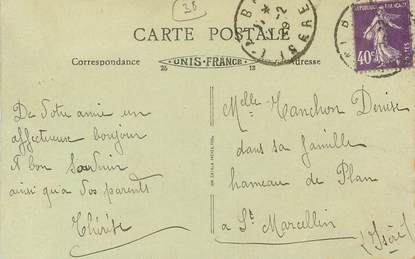 28
CARTE POSTALE
Correspondance
UNIS-FRANCE
Adresse
ISERE
40c
De Votre amie un
affectueuse bonjour
et bon Souvenir
ainsi qu'a Vos parents
Thérèse
Melle Tanchon Denise
dans sa famille
hameau de Plan
a St Marcellin
(Isère)